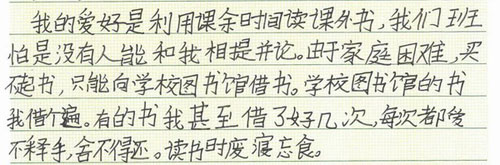 我的爱好是利用课余时间读课外书，我们班
怕是没有人能和我相提并论。由于家庭困难，买
不起书，只能向学校图书馆借书。学校图书馆的书
我借个遍。有的书我甚至借了好几次，每次都爱
不释手，舍不得还。读书时废寝忘食。